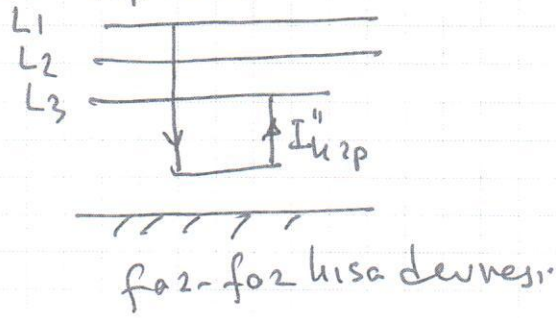 L1
L2
L3
I"k2p
faz-faz kısa devresi.